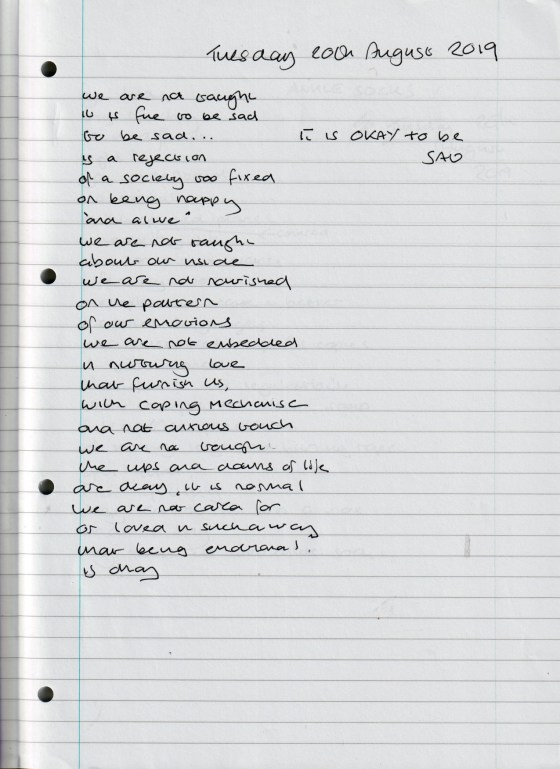 Tuesday 20th August 2019
we are not taught
it is fine to be sad
to be sad... IT IS OKAY to be
is a rejection SAD
of a society too fixed
on being happy
"and alive"
we are not taught
about our inside
we are not nourished
on the pattern
of our emotions
we are not embedded
in nurturing love
that furnish us,
with coping mechanise
and not anxious touch
we are not taught
the ups and downs of life
are okay, it is normal
we are not cared for
or loved in such a way
that being emotional.
is okay